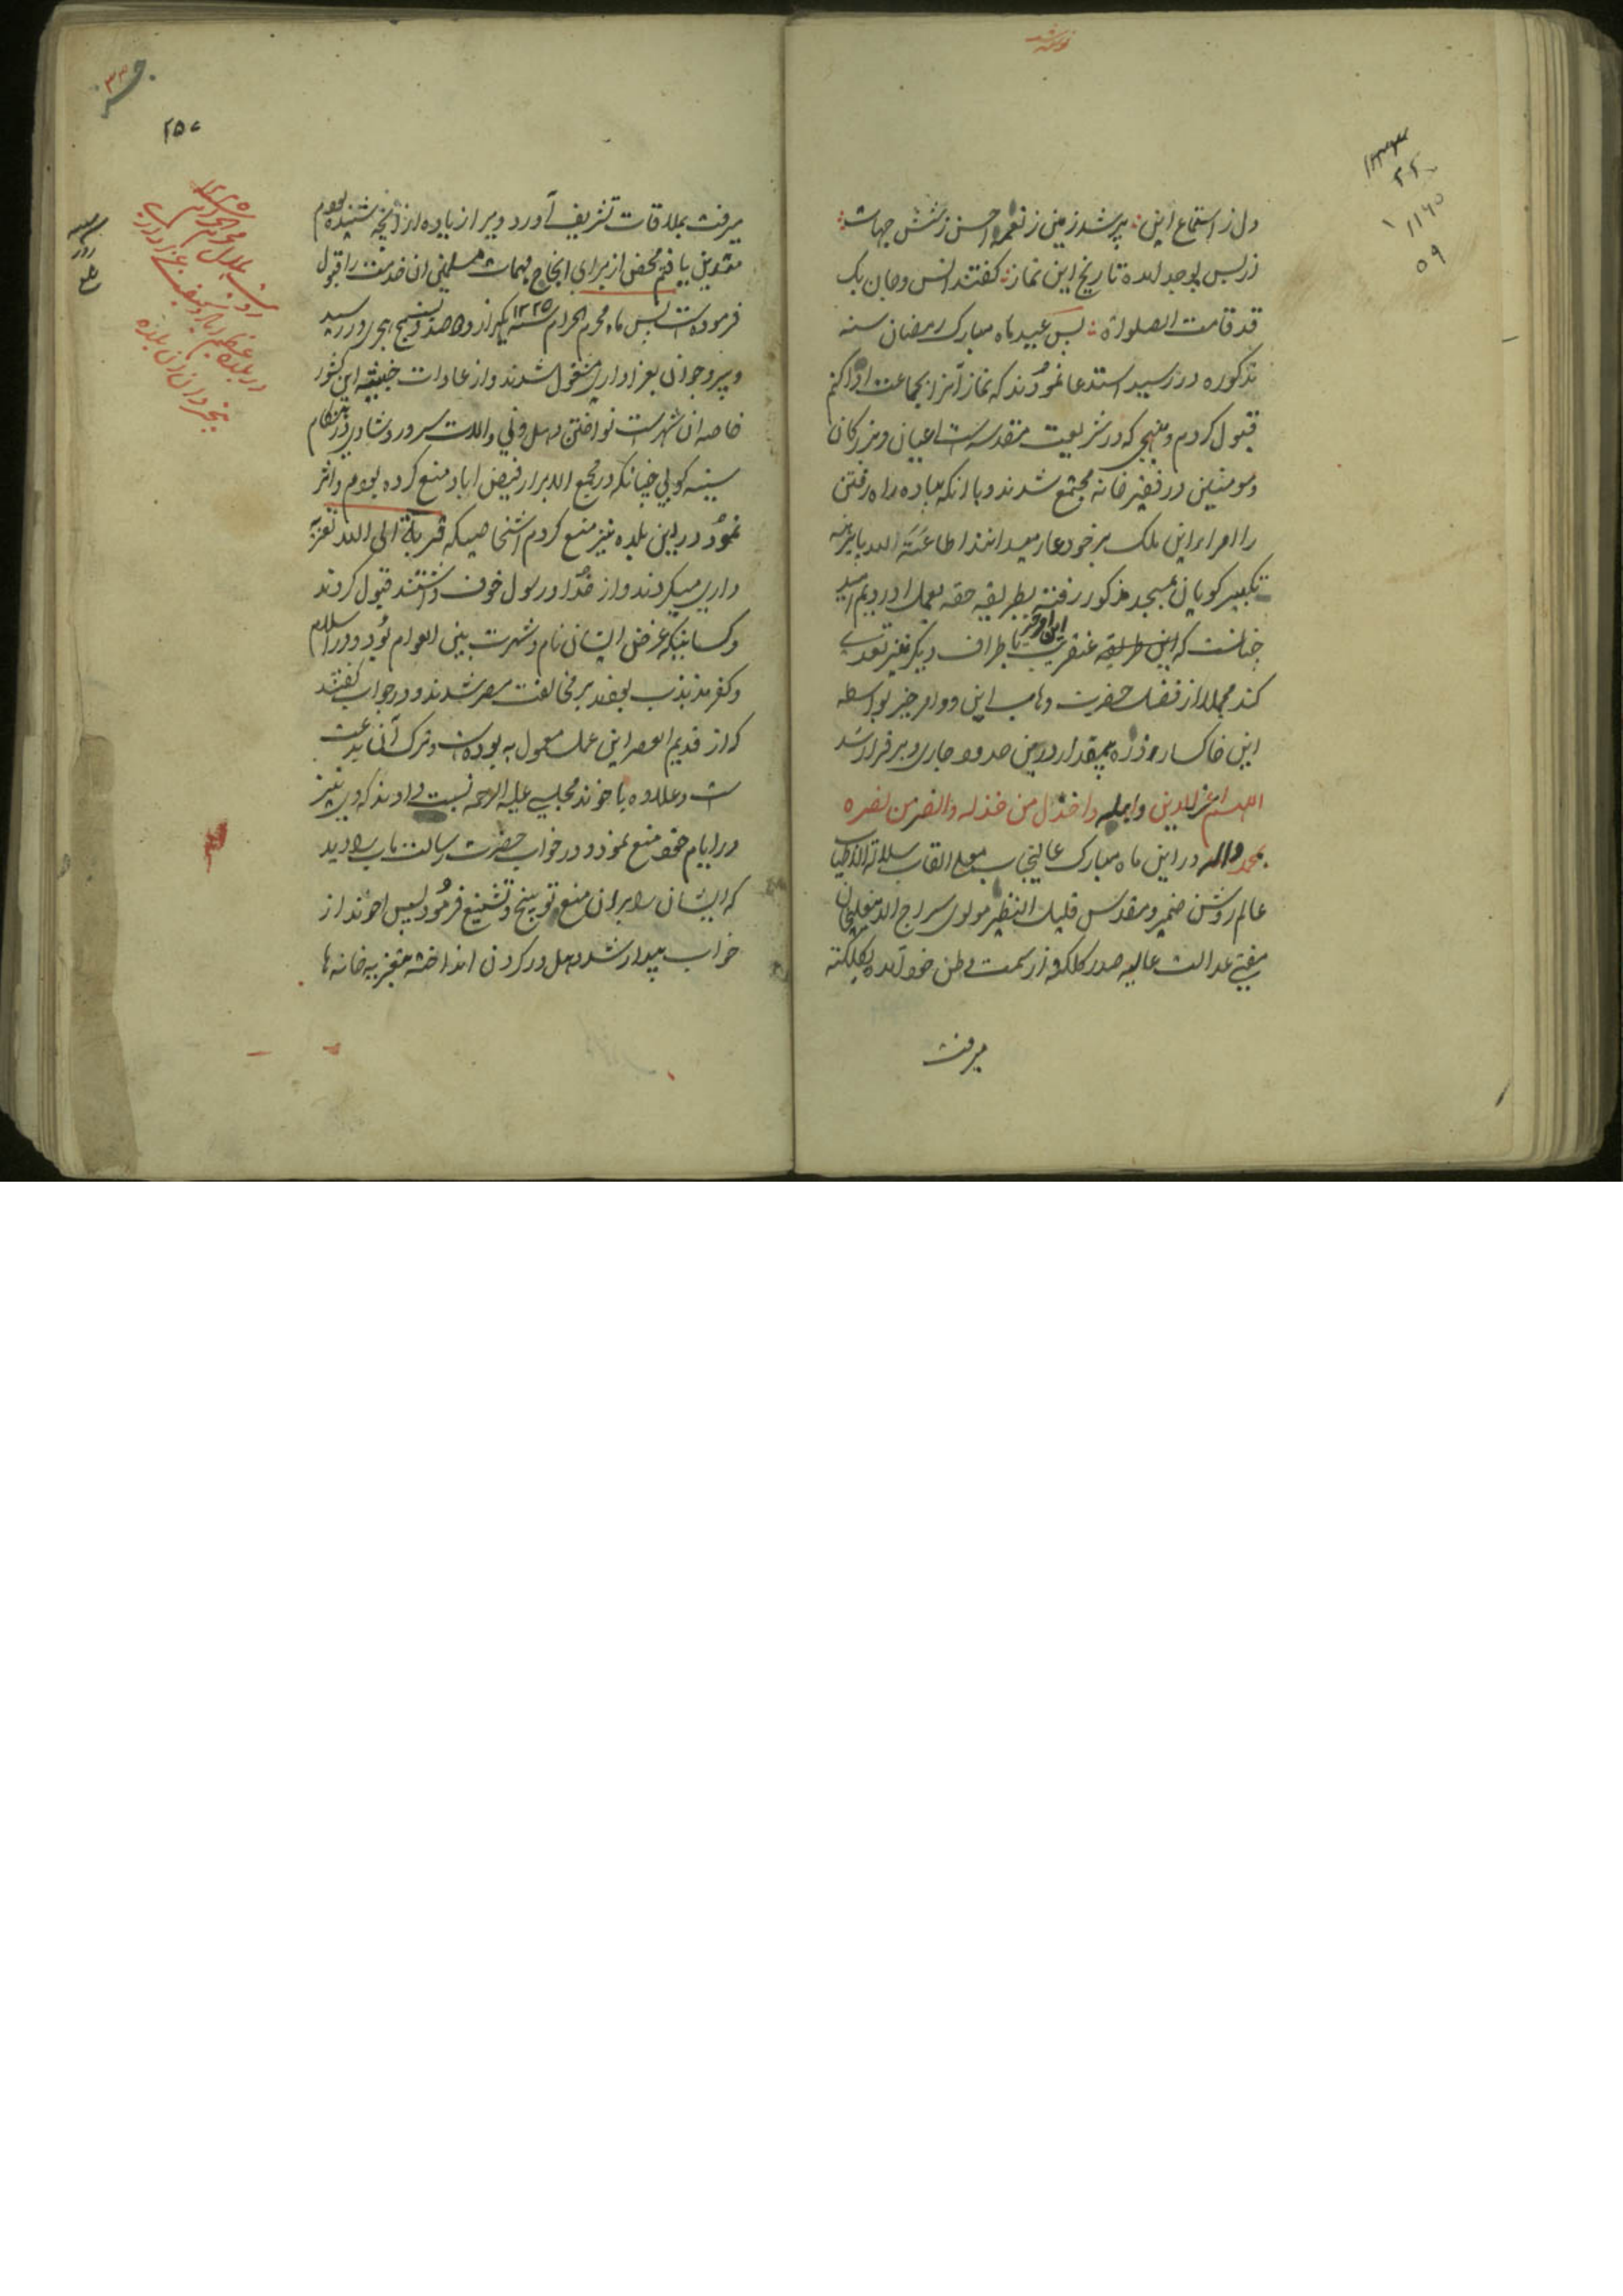 دل ز استماع این ؛ پر شد زمین ز نغمهٔ احسن ز شش جهات ؛
از بس بوجد آمده تاریخ این نماز ؛ گفتند انس و جان یک
قد قامت الصلواة ؛ پس عید ماه مبارک رمضان سنه
مذکوره در رسید استدعا نمودند که نماز آنرا بجماعت ادا کنم
قبول کردم و بنهجی که در شریعت مقدسه است اعیان و بزرکان
و مومنین در فقیر خانه مجتمع شدند و با انکه پیاده راه رفتن
را امرای این ملک بر خود عار میدانند اطاعَتَه لله پا برهنه
تکبیر کویان بمسجد مذکور رفته بطریقه حقه بعمل اوردیم امید
چنانست که این طریقه عنقریب باطراف دیکر نیز تعدی
این امر خیر
کند مجملا از فضل حضرت وهاب این دو امر خیر بواسطه
این خاکسار و ذره بیمقدار در این حدود جاری و برقرار شد
اللهم اعز الدین و اهله واخذل من خذله وانصر من نصره
بمحمد واله در این ماه مبارک عالیجناب معلی القاب سلالة الاطیاب
عالم روشن ضمیر و مقدس قلیل النظیر مولوی سراج الدینعلیخان
مفتی عدالت عالیه صدر کلکته از سمت وطن خود آمده بکلکته
میرفت
میرفت بملاقات تشریف آورد ویرا زیاده از آنچه شنیده بودم
متدین یافتم محض از برای انجاح مهمات مسلمین ان خدمت را قبول
فرموده است پس ماه محرم الحرام سنه ۱۲۲۵ یکهزار و دو صد و بیست و پنج هجری در رسید
و پیر و جوان بعزاداری مشغول شدند و از عادات خبیثه این کشور
خاصه ان شهر است نواختن دهل و نی و الات سرور و شادی در هنکام
سینه کوبی چنانکه در مجمع الابرار فیض اباد منع کرده بودم و اثر
نمود در این بلده نیز منع کردم اشخاصیکه قربة الی الله تعزیه
داری میکردند و از خدا و رسول خوف داشتند قبول کردند
و کسانیکه غرض ایشان نام و شهرت بین العوام بود و در اسلام
و کفر مذبذب بودند بر مخالفت مصر شدند و در جواب گفتند
که از قدیم العصر این عمل معمول به بوده است و ترک آن بدعت
است و علاوه باخوند مجلسی علیه الرحمه نسبت دادند که وی نیز
در ایام خود منع نمود و در خواب حضرت رسالت مآب را دید
که ایشان را بر ان منع توبیخ و تشنیع فرمود پس اخوند از
خواب بیدار شد و دهل در کردن انداخته بتعزیه خانه ها
۲۵۷